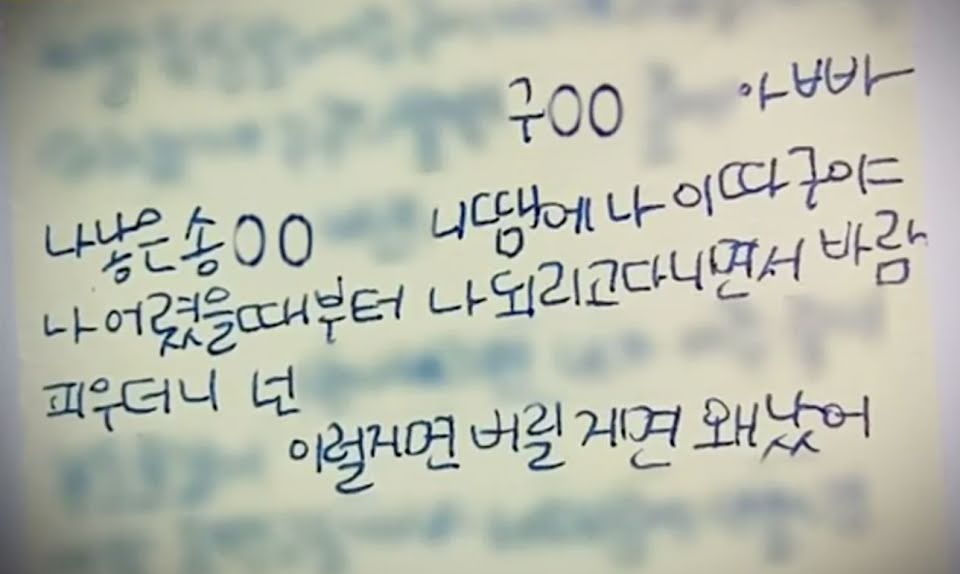 구OO 아빠
나낳은송OO 니땜에나이따구야
나어렸을때부터 나뙤리고다니면서 바람
피우더니 넌
이럴게면 버릴게면 왜낳어